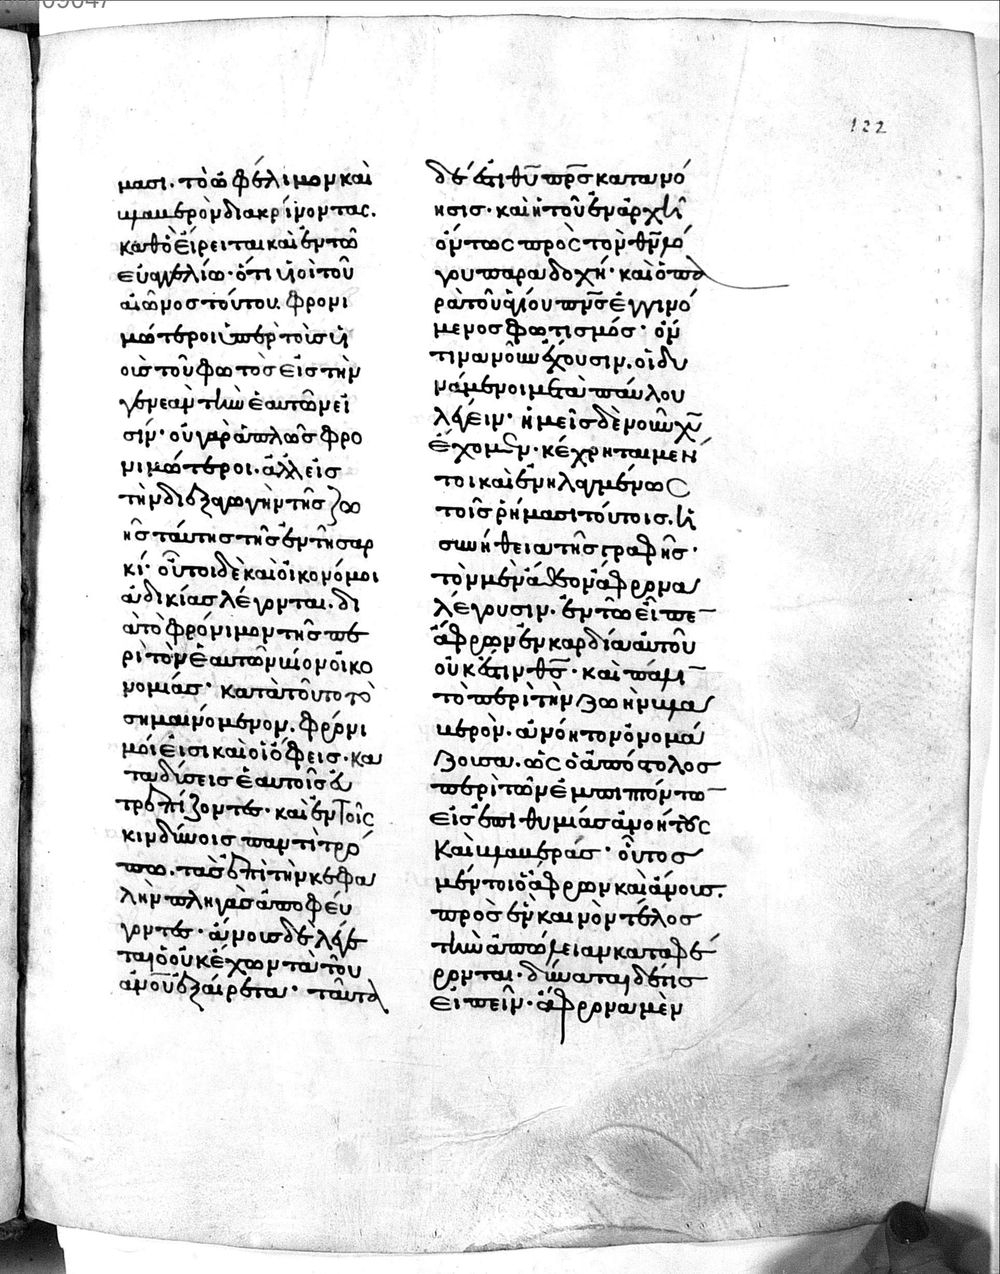 122
μασι· τὸ ὠφέλιμον καὶ
βλαβερὸν διακρίνοντας.
καθὸ εἴρειται καὶ ἐν τῶ
εὐαγγελίω· ὅτι υἱοὶ τοῦ
αἰῶνος τούτου. φρονι
μώτεροι ὑπὲρ τοὺς υἱ
οὺς τοῦ φωτὸς εἰς τὴν
γενεὰν τὴν ἑαυτῶν εἰ
σίν· οὐ γὰρ ἁπλῶς φρο
νιμώτεροι. ἀλλ' εἰς
τὴν διεξαγωγὴν τῆς ζω
ῆς ταύτης τῆς ἐν τῆ σαρ
κί· οὗτοι δὲ καὶ οἰκονόμοι
ἀδικίας λέγονται. δι
ὰ τὸ φρόνιμον τῆς πε
ρὶ τὸν ἑαυτῶν οἰκο
νομίας· κατὰ τοῦτο τὸ
σημαινόμενον. φρόνι
μοί εἰσι καὶ οἱ ὄφεις· κα
ταδύσεις ἑαυτοῖς εὐ
τρεπίζοντες· καὶ ἐν τοῖς
κινδύνοις παντὶ τρό
πω. τὰς ἐπὶ τὴν κεφα
λὴν πληγὰς ἀποφεύ
γοντες· ἄνους δὲ λέγε
ται ὁ οὐκ ἔχων τὰ τοῦ
ἀνοῦ ἐξαίρετα· ταῦτα
δέ ἐστι θῦ πρς κατανό
ησις· καὶ ἡ τοῦ ἐν ἀρχῆ
ὄντως πρὸς τὸν θν λό
γου παραδοχή· καὶ ὁ πα
ρὰ τοῦ ἁγίου πνς ἐγγινό
μενος φωτισμός· ὅν
τινα νοῦν ἔχουσιν. οἱ δυ
νάμενοι μετὰ παύλου
λέγειν· ἡμεῖς δὲ νοῦν χυ
ἔχομεν· κέχρηται μέν
τοι καὶ ἐνηλλαγμένως
τοῖς ῥήμασι τούτοις. ἡ
συνήθεια τῆς γραφῆς·
τὸν μὲν ἄθεον ἄφρονα
λέγουσιν. ἐν τῶ εἶπεν
ἄφρων ἐν καρδία αὐτοῦ
οὐκ ἔστιν θς· καὶ πάλιν
τὸ περὶ τὴν ζωὴν βλα
βερὸν. ἀνόητον ὀνομά
ζουσα. ὡς ὁ ἀπόστολος
περὶ τῶν ἐμπιπτόντων
εἰς ἐπιθυμίας ἀνοήτους
καὶ βλαβεράς· οὗτος
μέντοι ὁ ἄφρων καὶ ἄνους.
πρὸς ἓν κοινὸν τέλος
τὴν ἀπώλειαν καταφέ
ρονται. δύναται δέ τις
εἰπεῖν· ἄφρονα μὲν